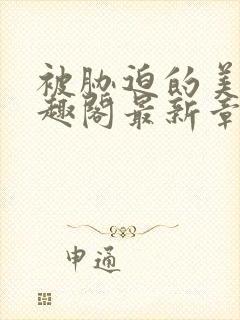 被胁迫的美
趣阁最新章
申通